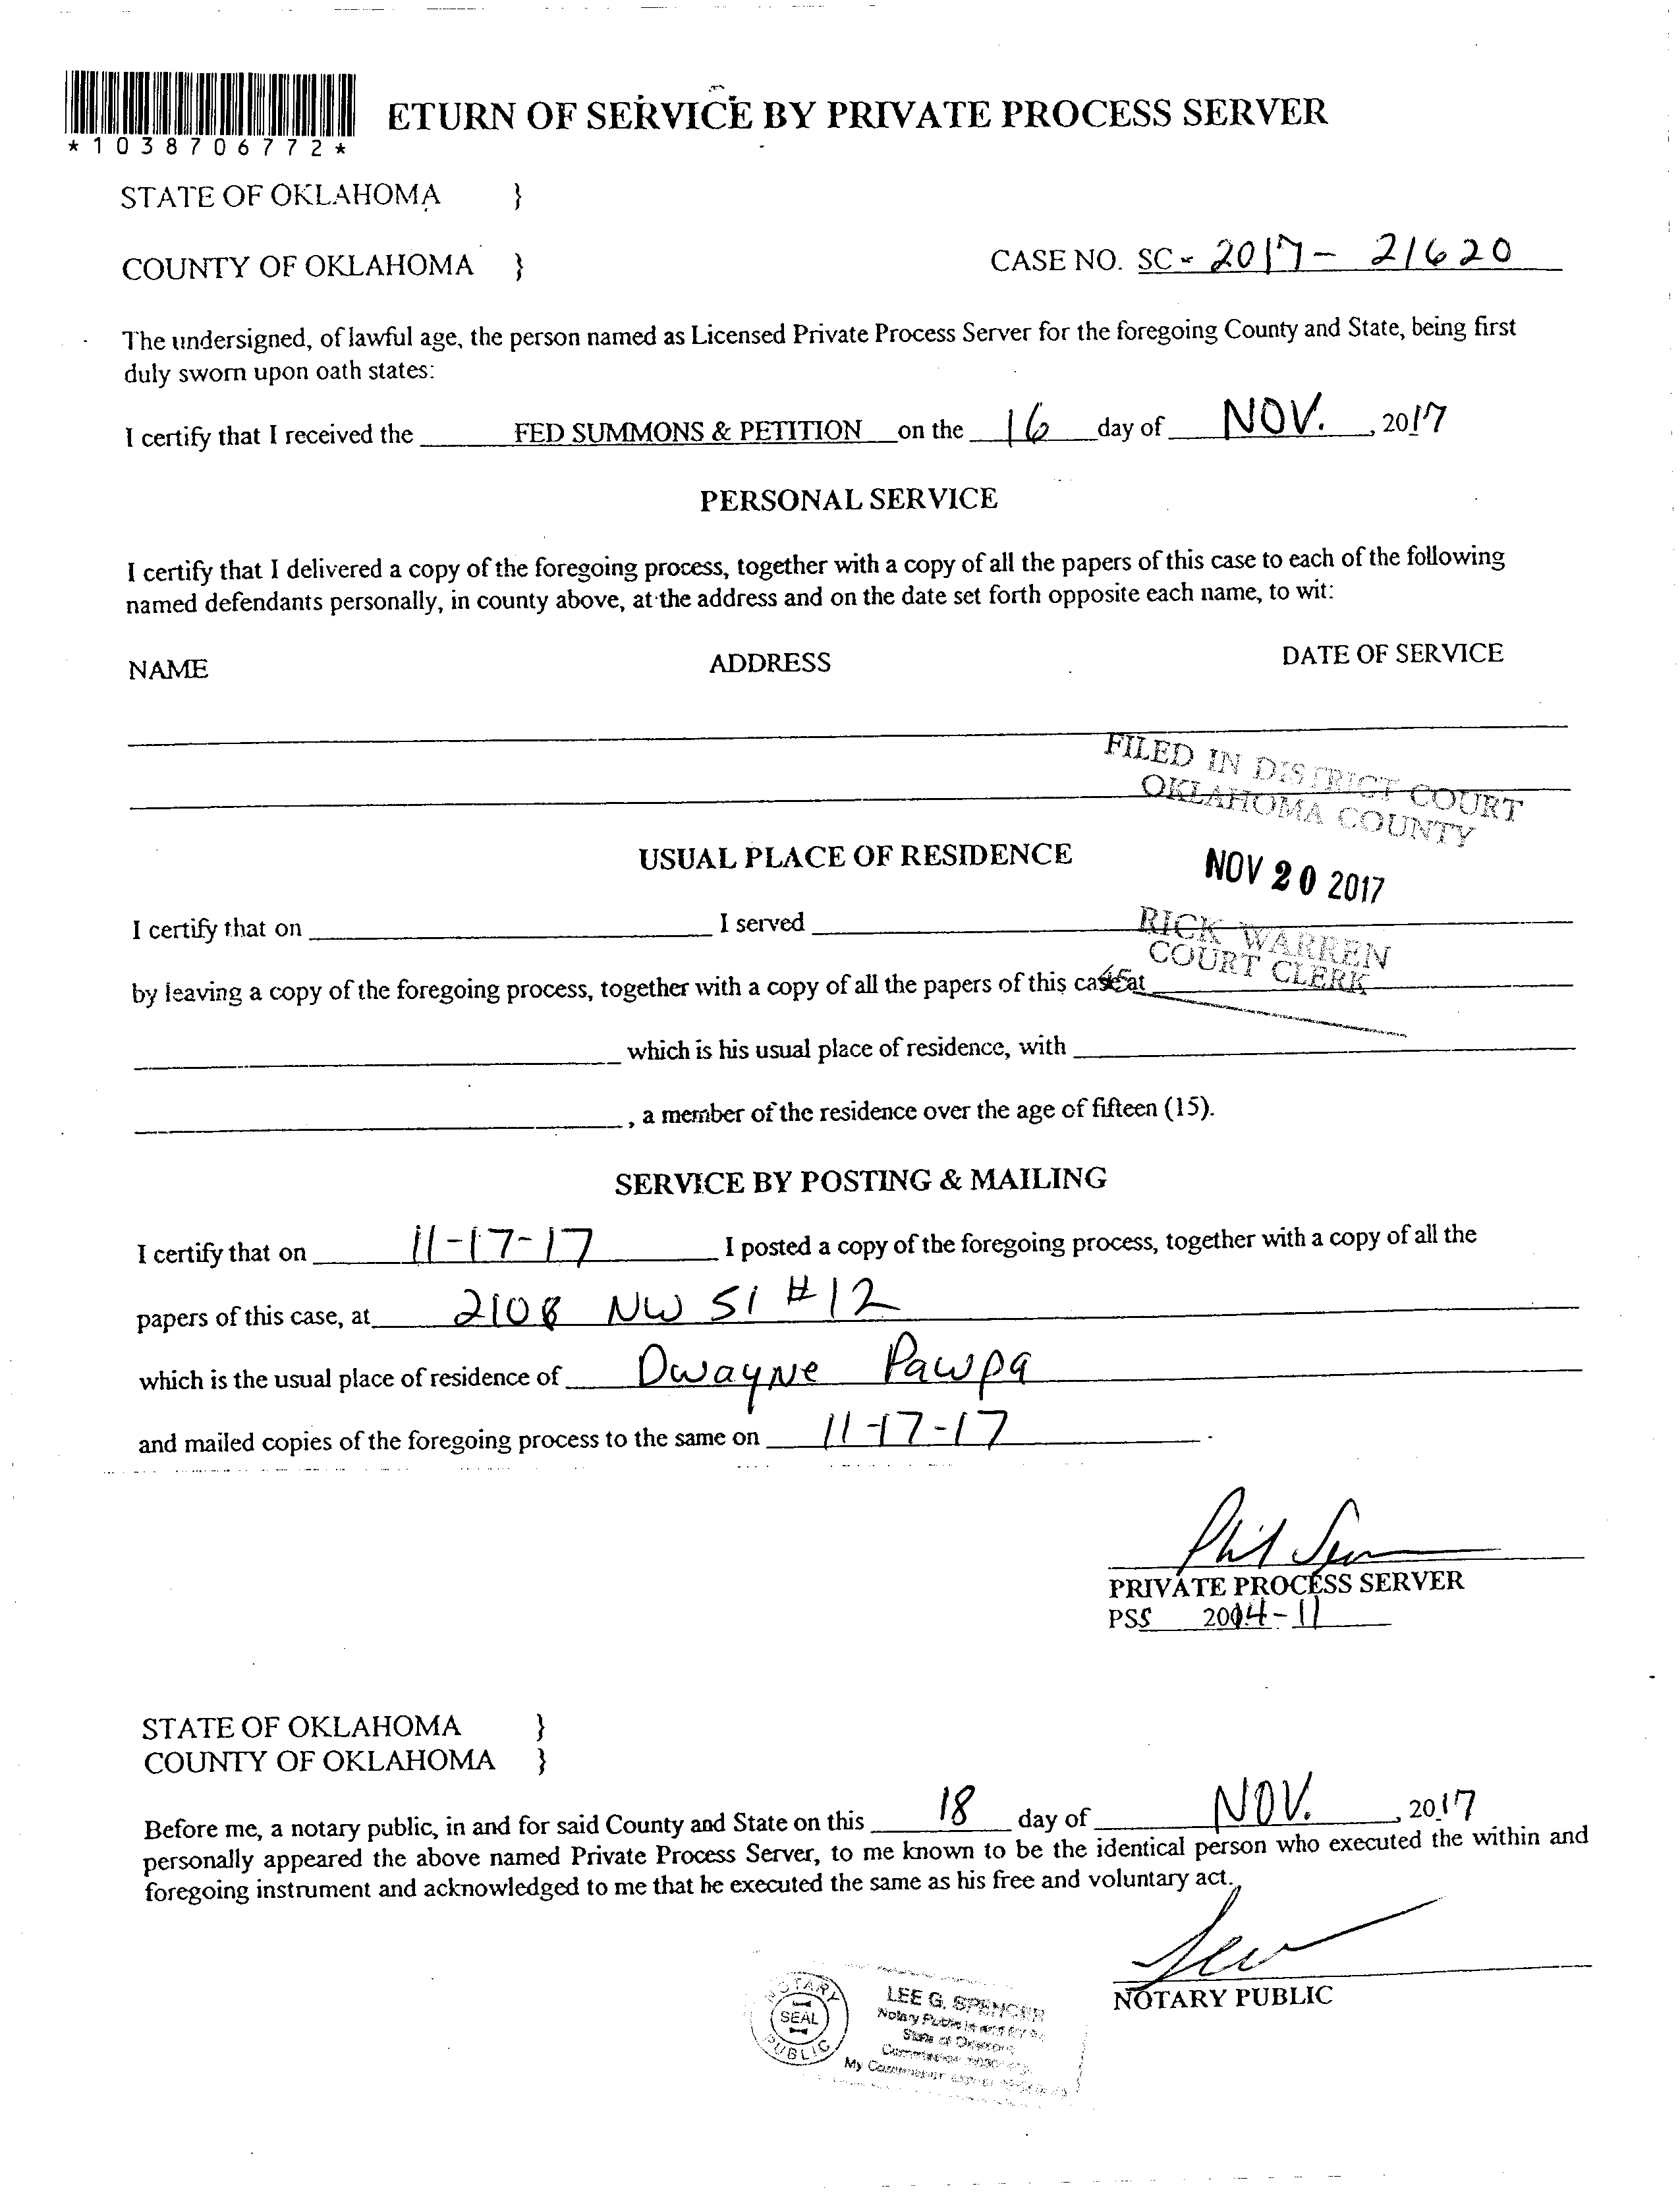 ETURN OF SERVICE BY PRIVATE PROCESS SERVER
*1038706772*
STATE OF OKLAHOMA }
COUNTY OF OKLAHOMA } CASE NO. SC - 2017 - 21620
The undersigned, of lawful age, the person named as Licensed Private Process Server for the foregoing County and State, being first
duly sworn upon oath states:
I certify that I received the FED SUMMONS & PETITION on the 16 day of NOV. , 2017
PERSONAL SERVICE
I certify that I delivered a copy of the foregoing process, together with a copy of all the papers of this case to each of the following
named defendants personally, in county above, at the address and on the date set forth opposite each name, to wit:
NAME ADDRESS DATE OF SERVICE
FILED IN DISTRICT COURT
OKLAHOMA COUNTY
NOV 20 2017
RICK WARREN
COURT CLERK
USUAL PLACE OF RESIDENCE
I certify that on I served
by leaving a copy of the foregoing process, together with a copy of all the papers of this case at
which is his usual place of residence, with
, a member of the residence over the age of fifteen (15).
SERVICE BY POSTING & MAILING
I certify that on 11-17-17 I posted a copy of the foregoing process, together with a copy of all the
papers of this case, at 2108 NW 51 #12
which is the usual place of residence of Dwayne Pawpa
and mailed copies of the foregoing process to the same on 11-17-17 .
Phil
PRIVATE PROCESS SERVER
PSS 2014-11
STATE OF OKLAHOMA }
COUNTY OF OKLAHOMA }
Before me, a notary public, in and for said County and State on this 18 day of NOV. , 2017
personally appeared the above named Private Process Server, to me known to be the identical person who executed the within and
foregoing instrument and acknowledged to me that he executed the same as his free and voluntary act.
NOTARY PUBLIC
NOTARY
SEAL
PUBLIC
LEE G. SPENCER
Notary Public in and for the
State of
My